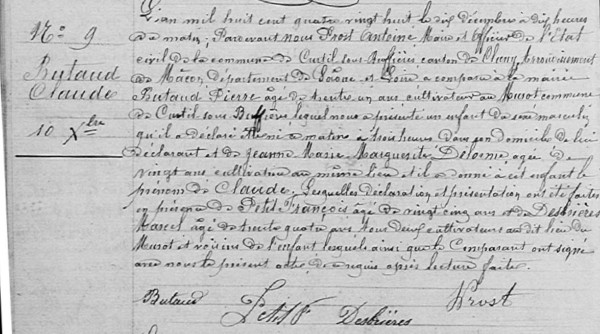 N° 9
Butaud
Claude
10 Xbre
L'an mil huit cent quatre vingt huit le dix Décembre à dix heures
du matin; Pardevant nous Prost Antoine Maire et Officier de l'Etat
civil de la commune de Curtil sous Buffières canton de Cluny Arrondissement
de Mâcon, Département de Saône et Loire a comparu à la mairie
Butaud Pierre âgé de trente un ans cultivateur au Musot commune
de Curtil sous Buffière lequel nous a présenté un enfant de sexe masculin
qu'il a déclaré être né ce matin à trois heures dans son domicile de lui
déclarant et de Jeanne Marie Marguerite Delorme âgée de
vingt ans cultivateur au même lieu et il a donné à cet enfant le
prénom de Claude. Lesquelles déclaration et présentation ont été faites
en présence de Petit François âgé de vingt cinq ans et de Desbrières
Marcel âgé de trente quatre ans tous deux cultivateurs au dit lieu du
Musot et voisins de l'enfant lesquels ainsi que le Comparant ont signé
avec nous le présent acte de naguis après lecture faite.
Butaud
Petit F
Desbrières
Prost